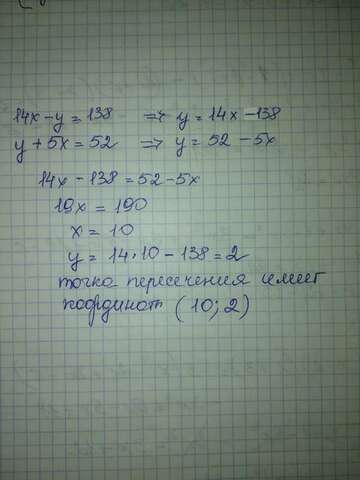 14x - y = 138 => y = 14x - 138
y + 5x = 52 => y = 52 - 5x
14x - 138 = 52 - 5x
19x = 190
x = 10
y = 14 • 10 - 138 = 2
точка пересечения имеет
координат (10; 2)